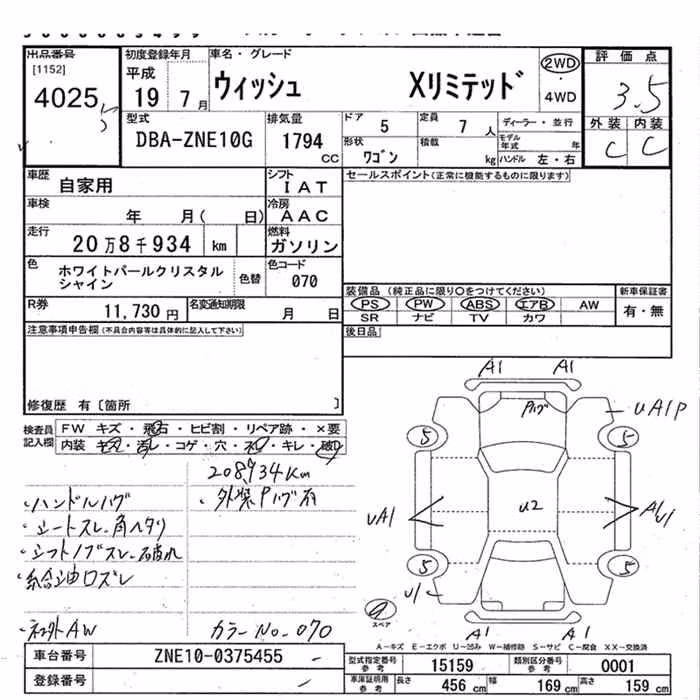 出品番号 初度登録年月 車名・グレード 2WD 評価点
[1152] 平成 ウィッシュ Xリミテッド 4WD 3.5
4025 19 7月
型式 排気量 ドア 5 定員 7人 ディーラー・並行 外装 内装
DBA-ZNE10G 1794 cc 形状 ワゴン 積載 kg モデル年式 年 式 ハンドル 左・右 C C
車歴 自家用 シフト IAT セールスポイント(正常に機能するものに限ります)
車検 年 月( 日) 冷房 AAC
走行 20万8千934 km 燃料 ガソリン
色 ホワイトパールクリスタル 色替 色コード
シャイン 070
装備品 (純正品に限り○をつけてください) 新車保証書
R券 11,730円 名変通知期限 月 日 PS PW ABS エアB AW 有・無
SR ナビ TV カワ
注意事項申告欄(不具合内容等は具体的に記入して下さい) 後日品
修復歴 有〔箇所 〕
検査員 FW キズ・飛石・ヒビ割・リペア跡・×要
記入欄 内装 キズ・汚レ・コゲ・穴・スレ・キレ・破レ
208934km
・ハンドルハゲ ・外装Pハゲ有
・シートスレ、角ヘタリ
・シフトノブスレ、破れ
・給油口ズレ
・ネ外AW カラーNo.070
A1 A1
Pハゲ UA1P
5 5
UA1 U2 AU1
5 5
U1
スペア A1 A1
A-キズ E-エクボ U-凹み W-補修跡 S-サビ C-腐食 XX-交換済
車台番号 ZNE10-0375455
登録番号
型式指定番号 参考 15159 類別区分番号 参考 0001
車庫証明用 参考 長さ 456 cm 幅 169 cm 高さ 159 cm